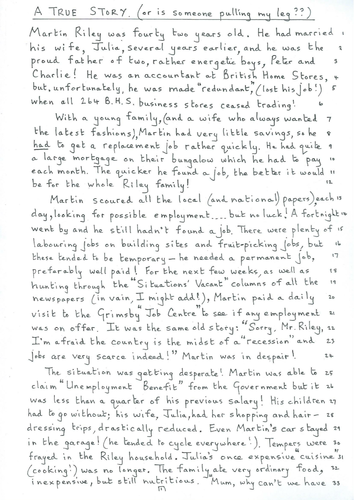 A TRUE STORY. (or is someone pulling my leg??)
Martin Riley was fourty two years old. He had married 1
his wife, Julia, several years earlier, and he was the 2
proud father of two, rather energetic boys, Peter and 3
Charlie! He was an accountant at British Home Stores, 4
but, unfortunately, he was made "redundant", (lost his job!) 5
when all 264 B.H.S. business stores ceased trading! 6
With a young family, (and a wife who always wanted 7
the latest fashions), Martin had very little savings, so he 8
had to get a replacement job rather quickly. He had quite 9
a large mortgage on their bungalow which he had to pay 10
each month. The quicker he found a job, the better it would 11
be for the whole Riley family! 12
Martin scoured all the local (and national) papers, each 13
day, looking for possible employment.... but no luck! A fortnight 14
went by and he still hadn't found a job. There were plenty of 15
labouring jobs on building sites and fruit-picking jobs, but 16
these tended to be temporary – he needed a permanent job, 17
preferably well paid! For the next few weeks, as well as 18
hunting through the "Situations' Vacant" columns of all the 19
newspapers (in vain, I might add!), Martin paid a daily 20
visit to the Grimsby "Job Centre" to see if any employment 21
was on offer. It was the same old story: "Sorry, Mr. Riley, 22
I'm afraid the country is the midst of a "recession" and 23
jobs are very scarce indeed!" Martin was in despair! 24
The situation was getting desperate! Martin was able to 25
claim "Unemployment Benefit" from the Government but it 26
was less then a quarter of his previous salary! His children 27
had to go without; his wife, Julia, had her shopping and hair- 28
dressing trips, drastically reduced. Even Martin's car stayed 29
in the garage! (he tended to cycle everywhere!). Tempers were 30
frayed in the Riley household. Julia's once expensive cuisine 31
(cooking!) was no longer. The family ate very ordinary food, 32
inexpensive, but still nutritious. "Mum, why can't we have 33